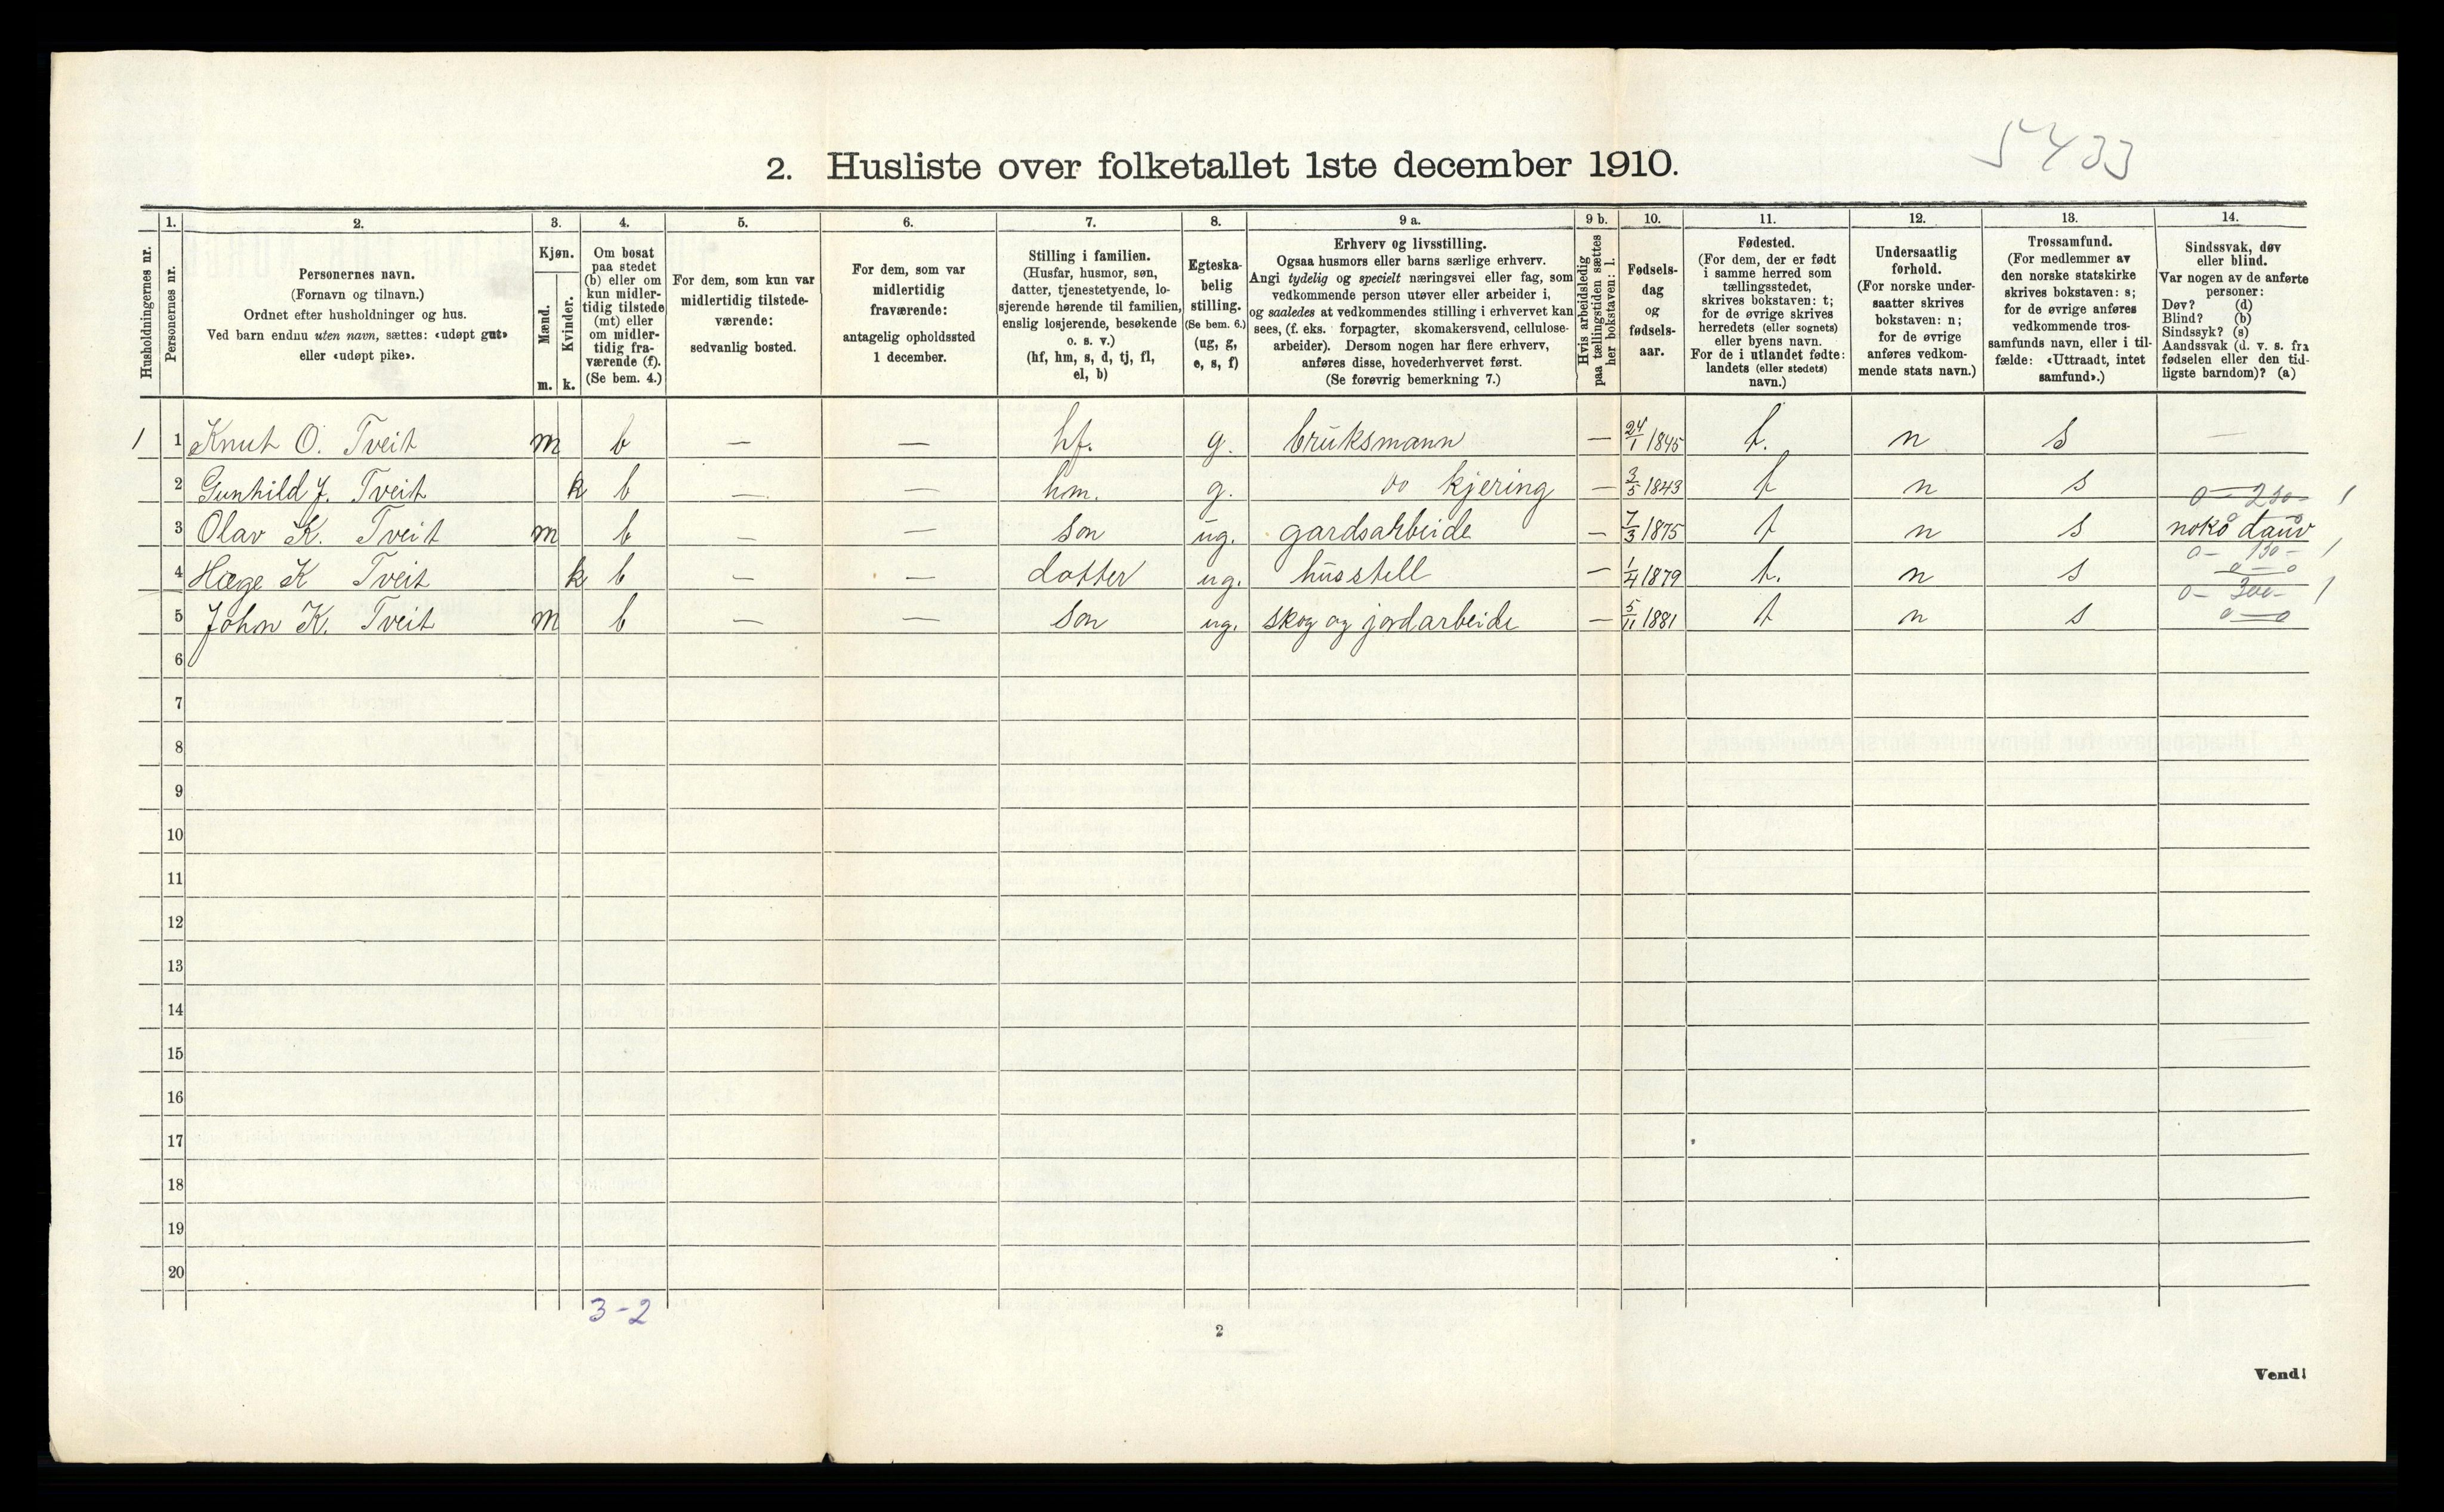 5433
2. Husliste over folketallet 1ste december 1910.
Husholdningernes nr.
1.
Personernes nr.
2.
Personernes navn.
(Fornavn og tilnavn.)
Ordnet efter husholdninger og hus.
Ved barn endnu uten navn, sættes: «udøpt gut»
eller «udøpt pike».
3.
Kjøn.
Mænd.
m.
Kvinder.
k.
4.
Om bosat
paa stedet
(b) eller om
kun midler-
tidig tilstede
(mt) eller
om midler-
tidig fra-
værende (f).
(Se bem. 4.)
5.
For dem, som kun var
midlertidig tilstede-
værende:
sedvanlig bosted.
6.
For dem, som var
midlertidig
fraværende:
antagelig opholdssted
1 december.
7.
Stilling i familien.
(Husfar, husmor, søn,
datter, tjenestetyende, lo-
sjerende hørende til familien,
enslig losjerende, besøkende
o. s. v.)
(hf, hm, s, d, tj, fl,
el, b)
8.
Egteska-
belig
stilling.
(Se bem. 6.)
(ug, g,
e, s, f)
9 a.
Erhverv og livsstilling.
Ogsaa husmors eller barns særlige erhverv.
Angi tydelig og specielt næringsvei eller fag, som
vedkommende person utøver eller arbeider i,
og saaledes at vedkommendes stilling i erhvervet kan
sees, (f. eks. forpagter, skomakersvend, cellulose-
arbeider). Dersom nogen har flere erhverv,
anføres disse, hovederhvervet først.
(Se forøvrig bemerkning 7.)
9 b.
Hvis arbeidsledig
paa tællingstiden sættes
her bokstaven: l.
10.
Fødsels-
dag
og
fødsels-
aar.
11.
Fødested.
(For dem, der er født
i samme herred som
tællingsstedet,
skrives bokstaven: t;
for de øvrige skrives
herredets (eller sognets)
eller byens navn.
For de i utlandet fødte:
landets (eller stedets)
navn.)
12.
Undersaatlig
forhold.
(For norske under-
saatter skrives
bokstaven: n;
for de øvrige
anføres vedkom-
mende stats navn.)
13.
Trossamfund.
(For medlemmer av
den norske statskirke
skrives bokstaven: s;
for de øvrige anføres
vedkommende tros-
samfunds navn, eller i til-
fælde: «Uttraadt, intet
samfund».)
14.
Sindssvak, døv
eller blind.
Var nogen av de anførte
personer:
Døv? (d)
Blind? (b)
Sindssyk? (s)
Aandssvak (d. v. s. fra
fødselen eller den tid-
ligste barndom)? (a)
1 1 Knut O. Tveit m b — — hf. g. bruksmann — 24/1 1845 t. n s —
2 Gunhild J. Tveit k b — — hm. g. do kjering — 3/5 1843 t n s
0 — 230 — 1
3 Olav K. Tveit m b — — son ug. gardsarbeide — 7/3 1875 t n s noko dauv
0 — 130 — 1
4 Hæge K Tveit k b — — dotter ug. husstell — 1/4 1879 t. n s 0 — 0
0 — 300 — 1
5 John K. Tveit m b — — son ug. skog og jordarbeide — 5/11 1881 t n s 0 — 0
6
7
8
9
10
11
12
13
14
15
16
17
18
19
20
3 - 2
2
Vend!